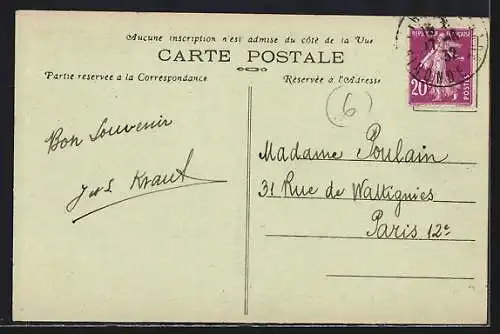 Aucune inscription n'est admise du côté de la Vue
CARTE POSTALE
Partie réservée à la Correspondance
Réservée à l'Adresse
RÉPUBLIQUE FRANÇAISE
20
POSTES
6
Bon Souvenir
Kraut
Madame Poulain
31 Rue de Wattignies
Paris 12e